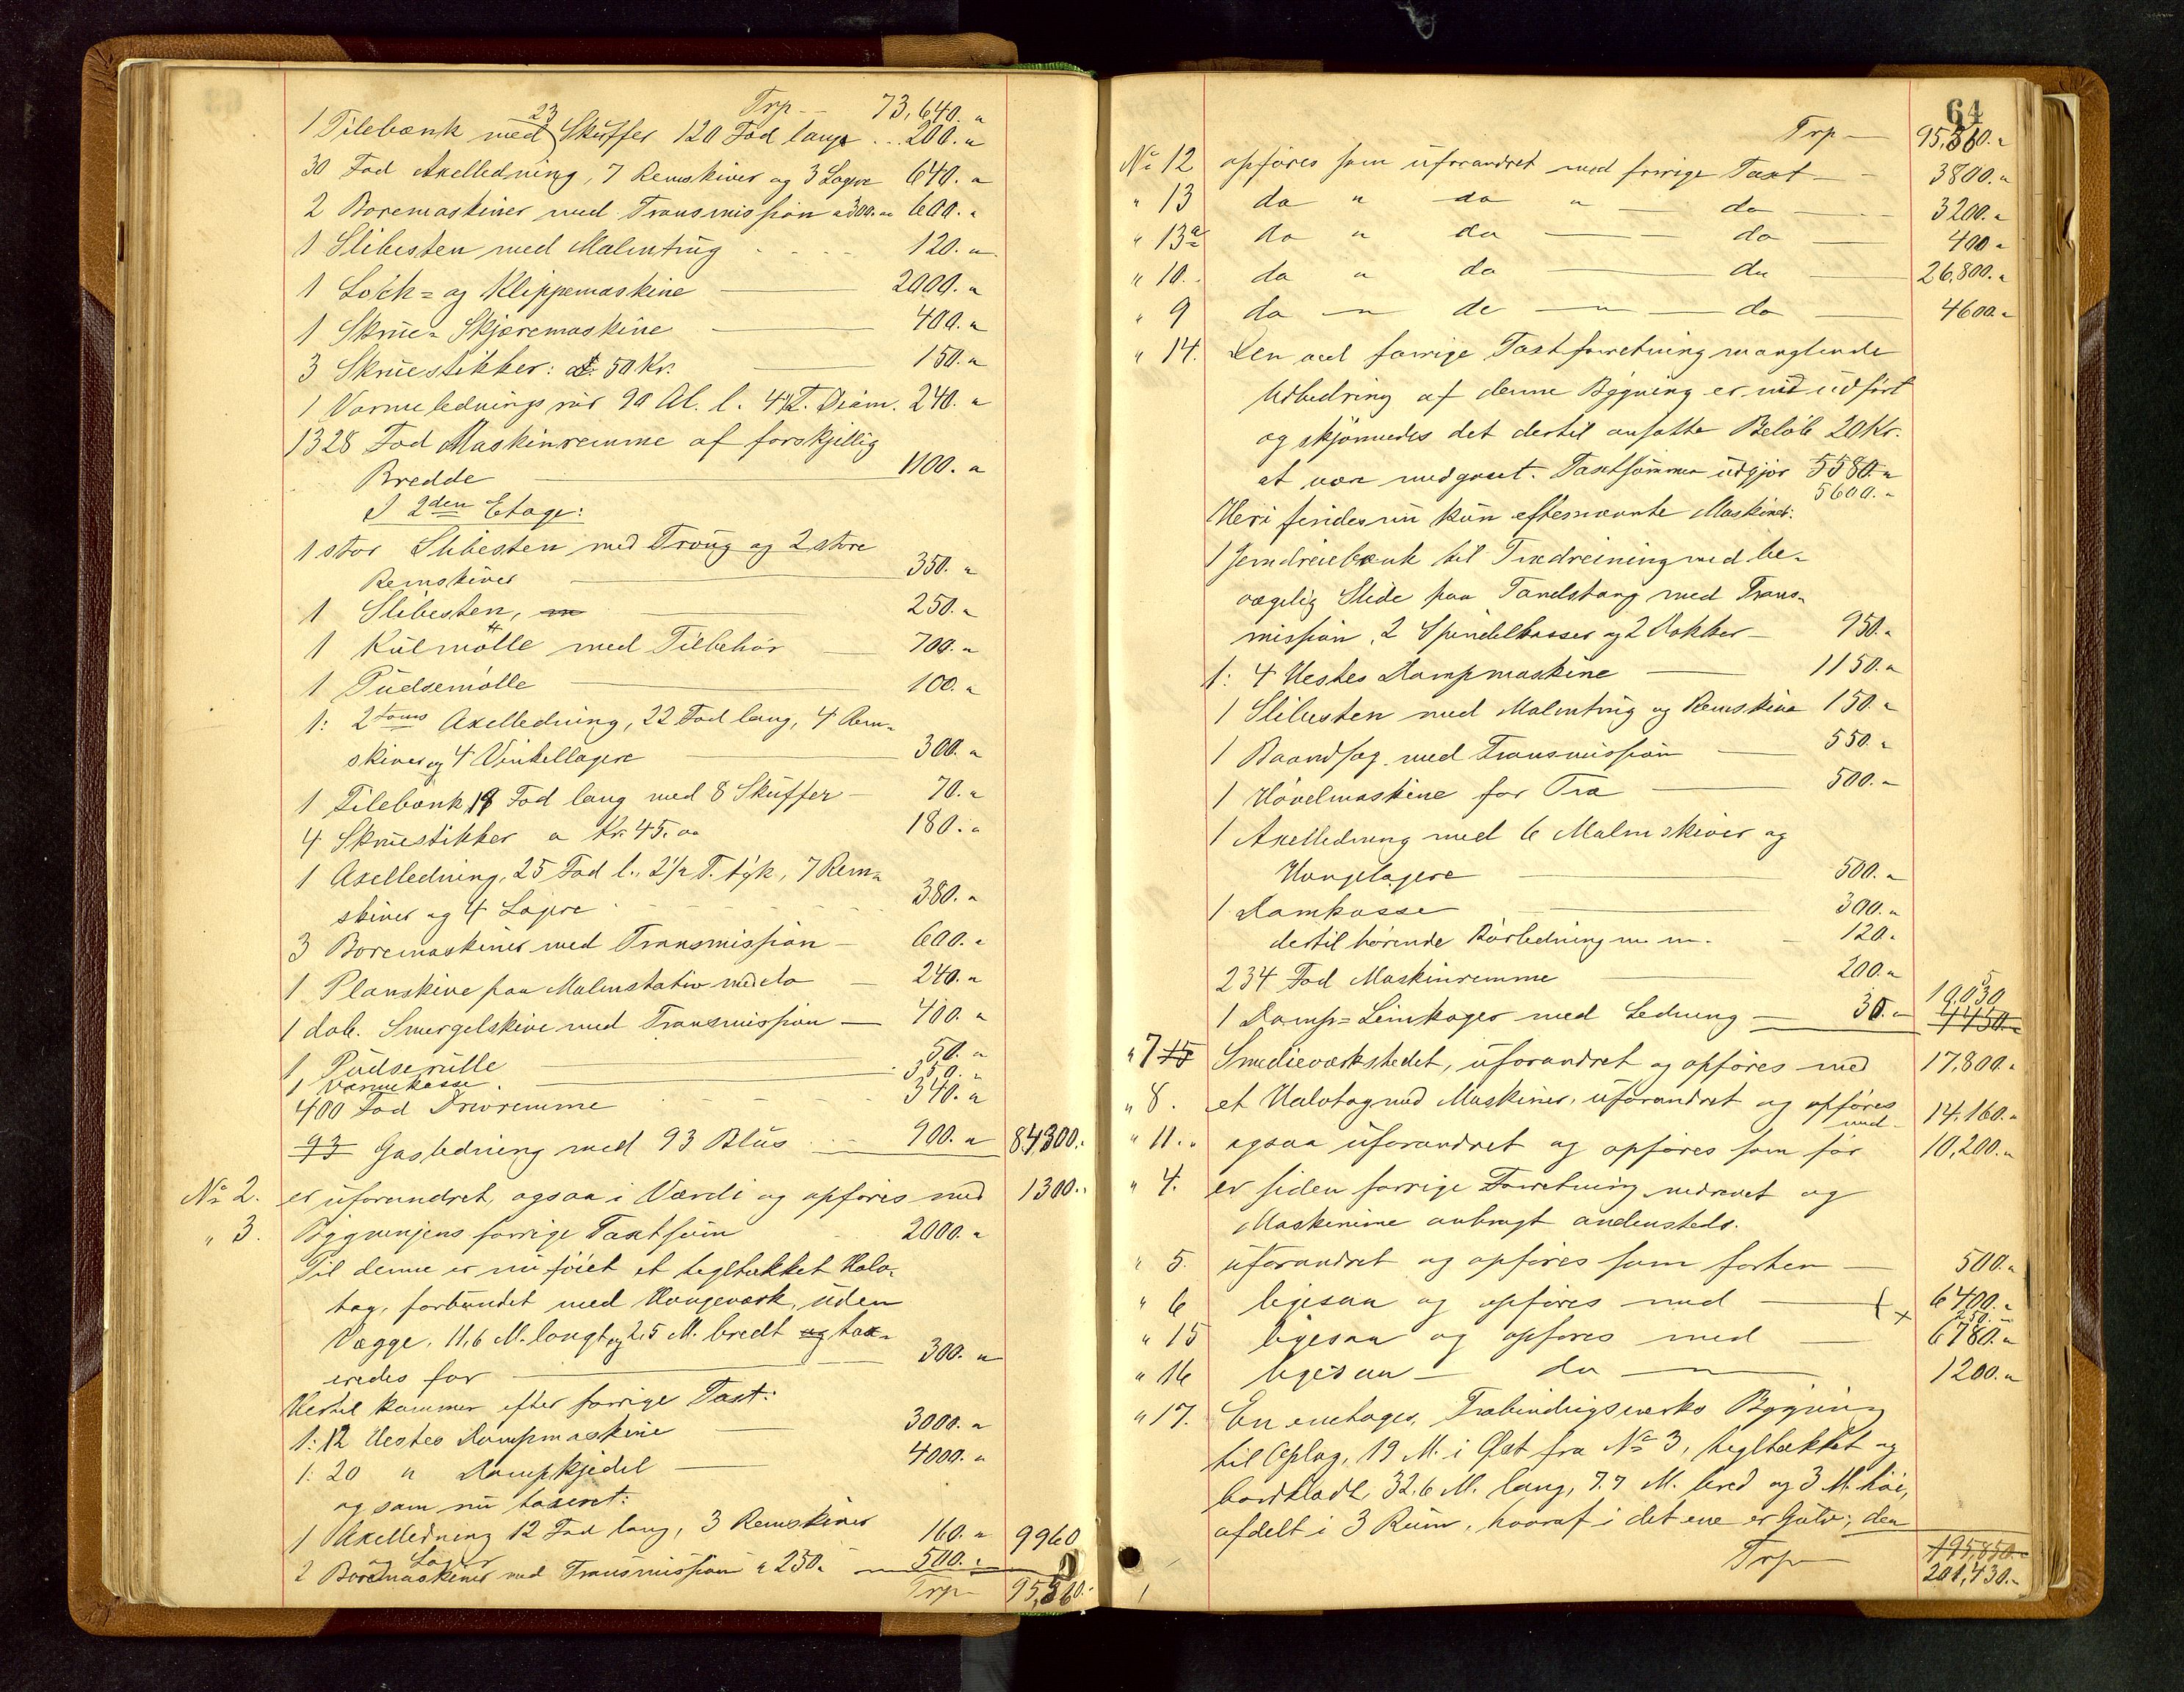 Trp — 73,640. "
1 Filebænk med 23 Skuffer 120 Fod lang ... 200. "
30 Fod Axelledning, 7 Remskiver og 3 Lagere 640. "
2 Boremaskiner med Transmission a 300. " 600. "
1 Slibesten med Malmtrug - - - - 120. "
1 Lock= og Klippemaskine — 2000. "
1 Skrue= Skjæremaskine — 400. "
3 Skruestikker: a 50 Kr. — 150. "
1 Varmeledningsrør 90 Al. l. 4 T. Diam. 240. "
1328 Fod Maskinremme af forskjellig
Bredde — 1100. "
I 2den Etage:
1 stor Slibesten med Troug og 2 store
Remskiver — 350. "
1 Slibesten, — 250. "
1 Kulmølle med Tilbehør — 700. "
1 Pudsemølle — 100. "
1: 2 toms Axelledning, 22 Fod lang, 4 Rem-
skiver og 4 Vinkellagere — 300. "
1 Filebænk 18 Fod lang med 8 Skuffer — 70. "
4 Skruestikker a Kr. 45. " 180. "
1 Axelledning, 25 Fod l., 2 1/2 T. tyk, 7 Rem=
skiver og 4 Lagere - - - 380. "
3 Boremaskiner med Transmission — 600. "
1 Planskive paa Malmstativ med do — 240. "
1 dob. Smergelskive med Transmission — 400. "
1 Pudserulle — 50. "
1 Varmekasse. — 350. "
400 Fod Drivremme - - - 340. "
93 Gasledning med 93 Blus — 900. " 84300. "
No 2. er uforandret, ogsaa i Værdi og opføres med 1300. "
" 3. Bygningens forrige Taxtsum 2000. "
Til denne er nu føiet et tegltækket Halv-
tag, forbundet med Hougeværk, uden
Vægge, 11,6 M. langt og 2,5 M. bredt og tax-
eredes for — 300. "
Hertil kommer efter forrige Taxt:
1: 12 Hestes Dampmaskine — 3000. "
1: 20 " Dampkjedel — 4000. "
og som nu taxeret:
1 Axelledning 12 Fod lang, 3 Remskiver
og Lager 160. " 9960
2 Boremaskiner med Transmission a 250. " — 500. "
Trp — 95,560. "
64
Trp — 95,560. "
No 12 opføres som uforandret med forrige Taxt — 3800. "
" 13 do " do " — do — 3200. "
" 13a do " do — do — 400 "
" 10. do " do — do — 26,800. "
" 9 do — do — do — 4600. "
" 14. Den ved forrige Taxtforretning manglende
Udbedring af denne Bygning er nu udført
og skjønnedes det dertil ansatte Beløb 20 Kr.
at være medgaaet. Taxtsummen udgjør 5580. "
5600. "
Heri findes nu kun efternævnte Maskiner:
1 Jerndreiebænk til Trædreining med be-
vægelig Slide paa Tandstang med Trans-
mission, 2 Spindelkasser og 2 Dokker — 950. "
1: 4 Hestes Dampmaskine — 1150. "
1 Slibesten med Malmtrug og Remskive 150. "
1 Baandsag med Transmission — 550. "
1 Høvelmaskine for Træ — 500. "
1 Axelledning med 6 Malmskiver og
Hængelagere — 500. "
1 Damkasse — 300. "
dertil hørende Rørledning m. m. — 120. "
234 Fod Maskinremme — 200. "
1 Damp= Limkoger med Ledning — 30. " 10,050
4450. "
" 7 15 Smedieværkstedet, uforandret og opføres med 17,800. "
" 8. et Halvtag med Maskiner, uforandret og opføres
med — 14,160. "
" 11. " ogsaa uforandret og opføres som før 10,200. "
" 4. er siden forrige Forretning nedrevet og
Maskinerne anbragt andensteds.
" 5. uforandret og opføres som forhen — 500. "
" 6 ligesaa og opføres med — 6400. "
350. "
" 15 ligesaa og opføres med — 6780. "
" 16 ligesaa — do — 1200. "
" 17. En eneetages, Træbindingsværks Bygning
til Oplag, 19 M. i Øst fra No 3, tegltækket og
bordklædt, 32.6 M. lang, 7.7 M. bred og 3 M. høi,
afdelt i 3 Rum, hvoraf i det ene er Gulv; den
Trp — 195,850. "
201,430. "